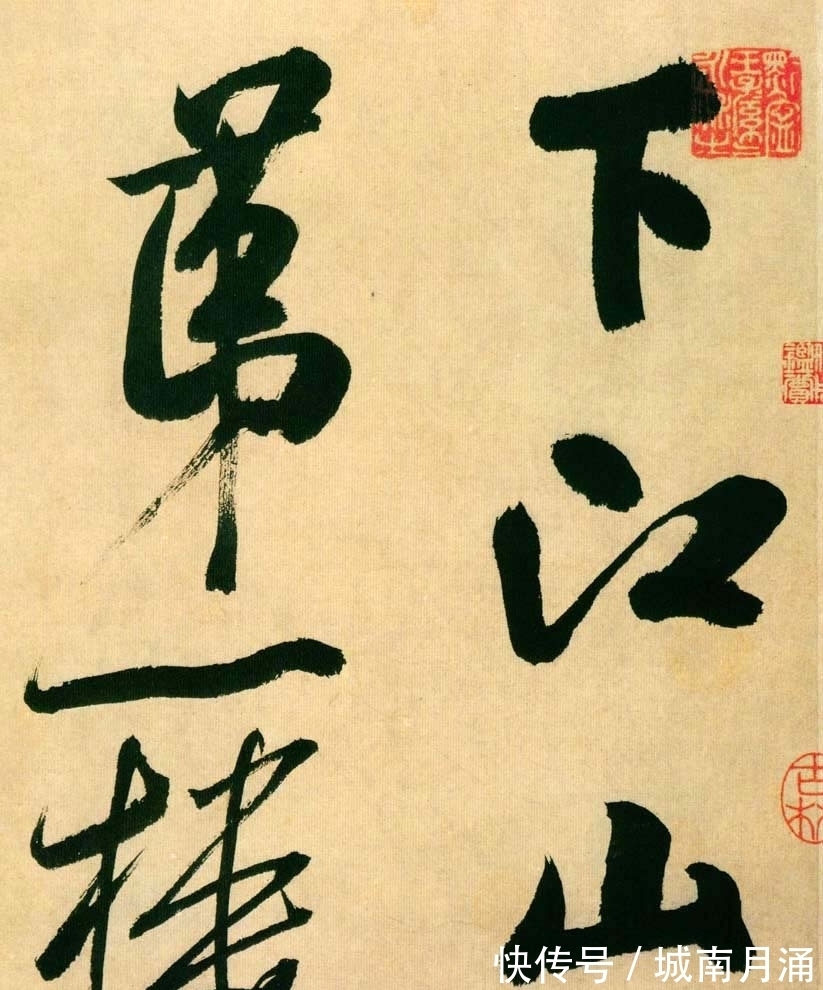 下江山
第一樓
快传号 / 城南月涌